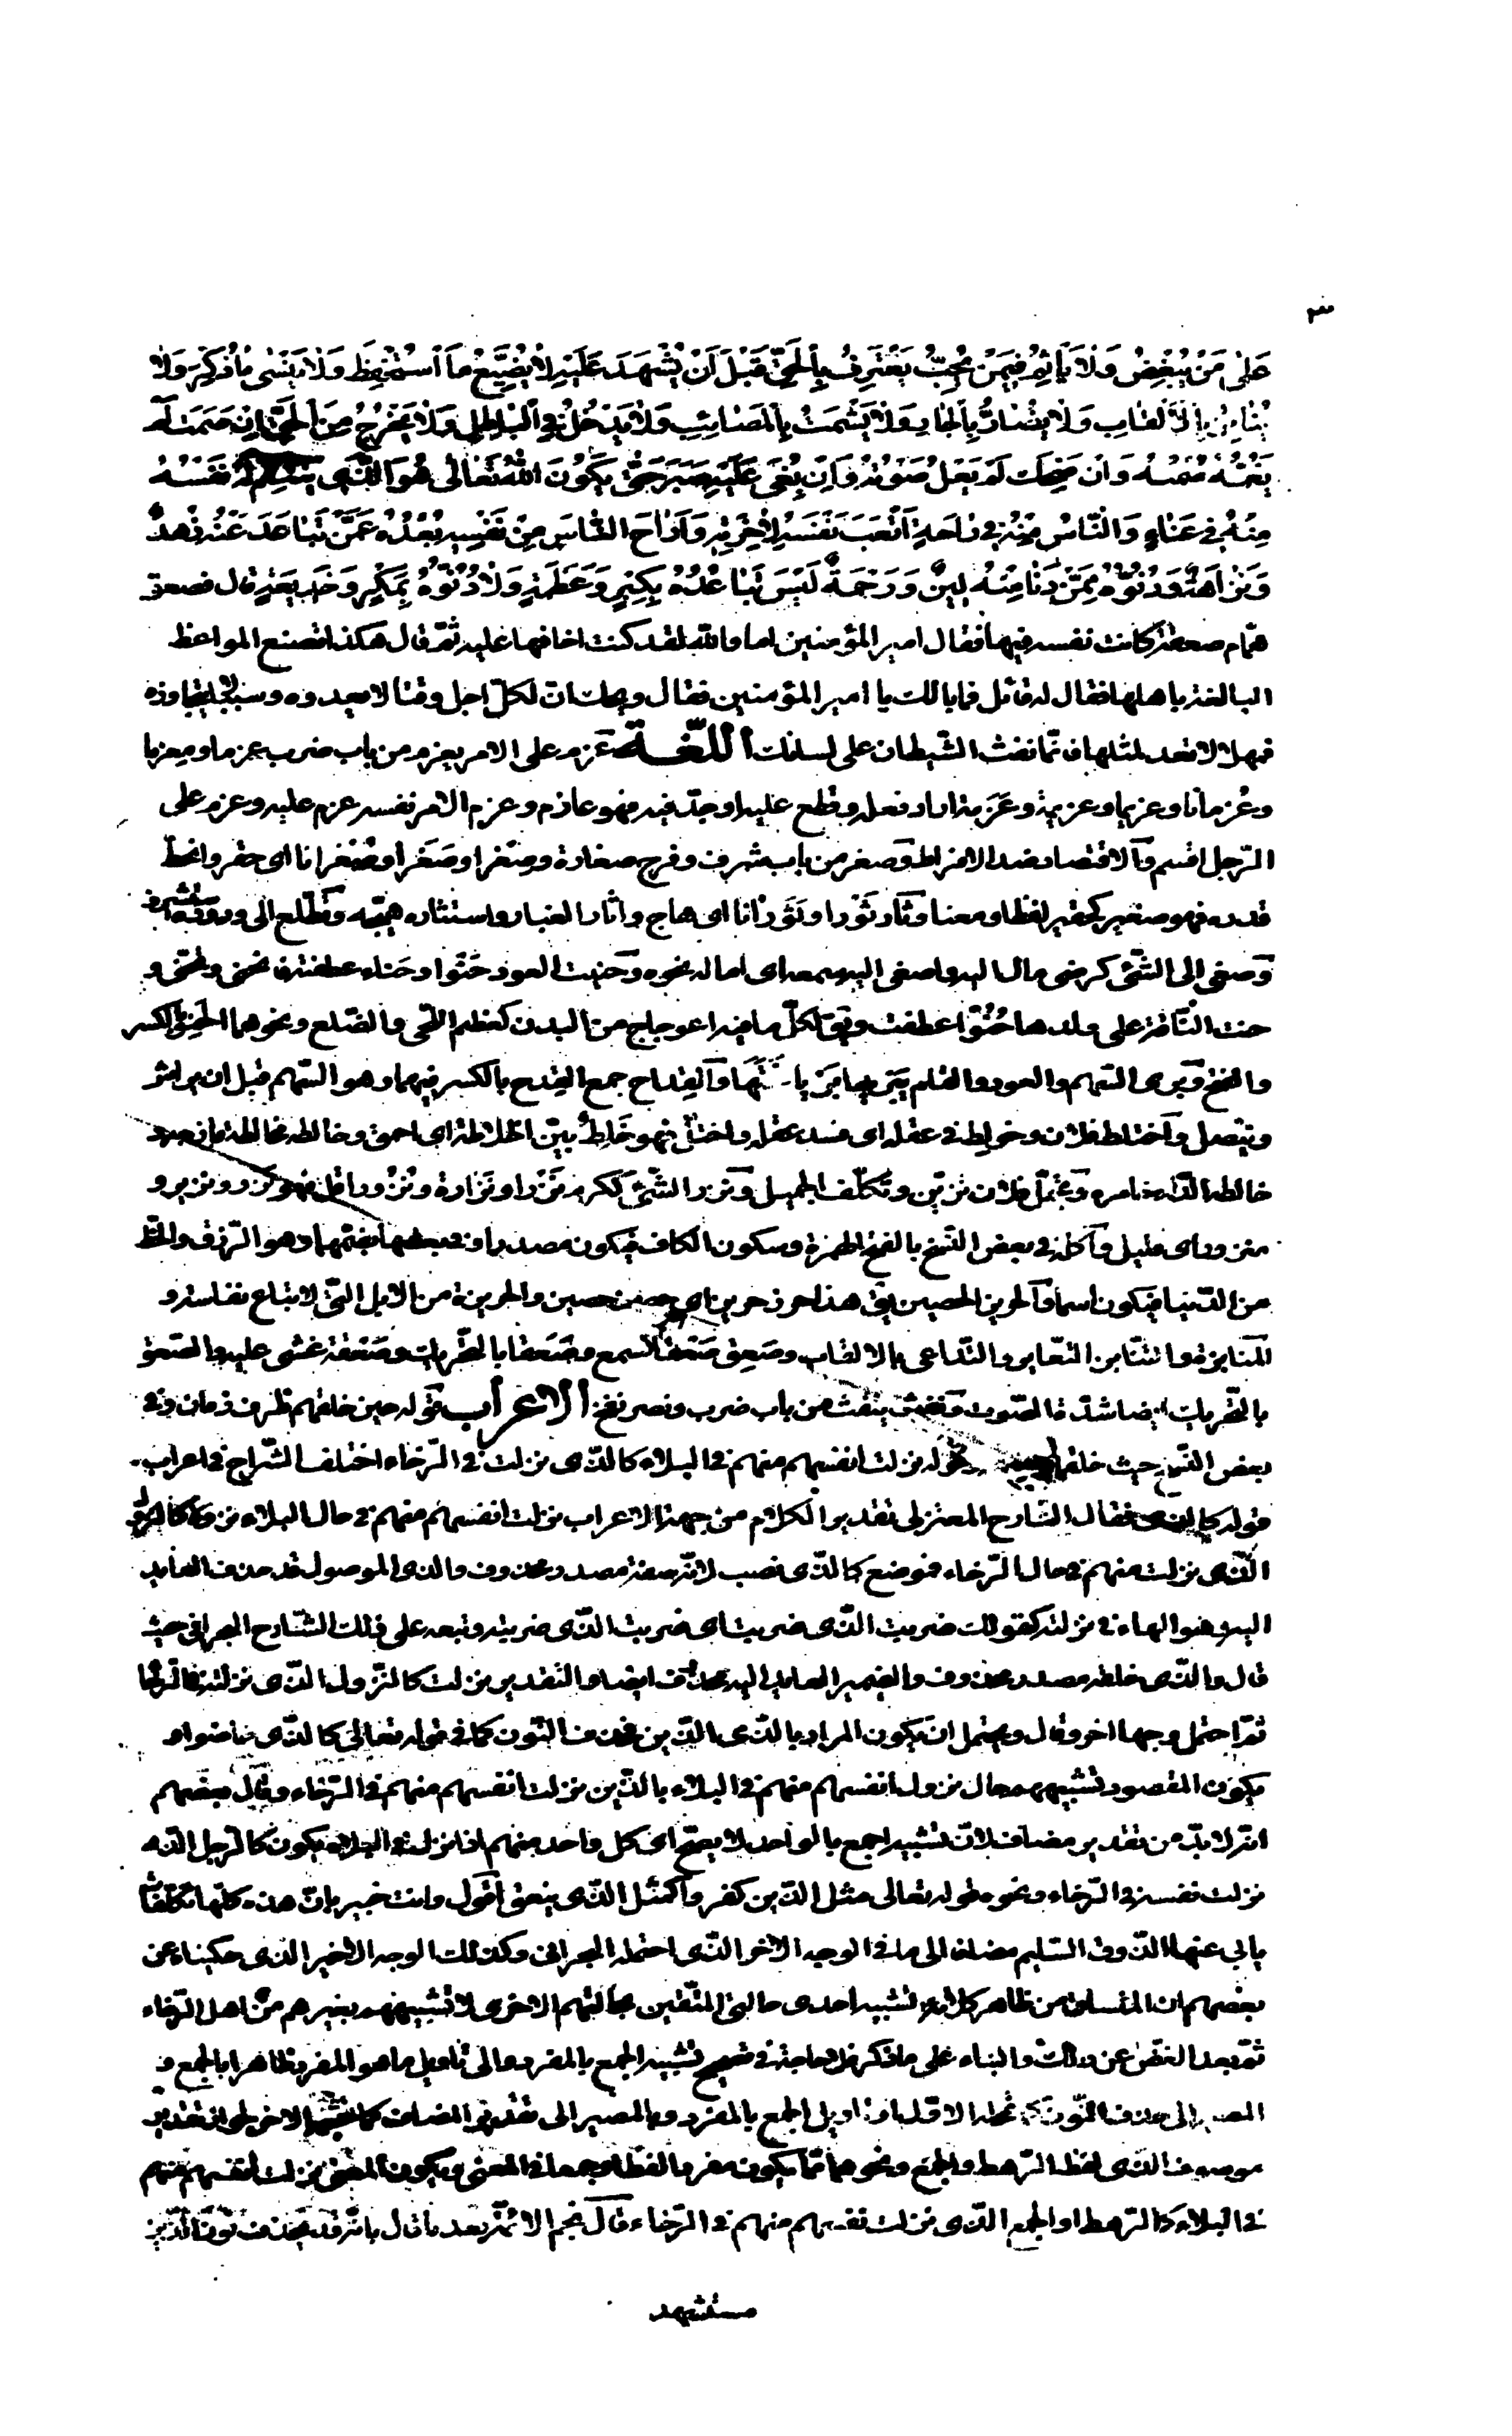 عَلىٰ مَنْ يُبْغِضُ وَلا يَأْثَمُ فيمَنْ يُحِبُّ يَعْتَرِفُ بِالْحَقِّ قَبْلَ أَنْ يُشْهَدَ عَلَيْهِ لا يُضَيِّعُ مَا اسْتُحْفِظَ وَلا يَنْسىٰ ما ذُكِّرَ وَلا
يُنابِزُ بِالْأَلْقابِ وَلا يُضارُّ بِالْجارِ وَلا يَشْمَتُ بِالْمَصائِبِ وَلا يَدْخُلُ فِي الْباطِلِ وَلا يَخْرُجُ مِنَ الْحَقِّ إِنْ صَمَتَ لَمْ
يَغُمَّهُ صَمْتُهُ وَانْ ضَحِكَ لَمْ يَعْلُ صَوْتُهُ وَاِنْ بُغِيَ عَلَيْهِ صَبَرَ حَتّىٰ يَكُونَ اللّهُ تَعالىٰ هُوَ الَّذي يَنْتَقِمُ لَهُ نَفْسُهُ
مِنْهُ في عَناءٍ وَالنّاسُ مِنْهُ في راحَةٍ أَتْعَبَ نَفْسَهُ لِاٰخِرَتِهِ وَأَراحَ النّاسَ مِنْ نَفْسِهِ بُعْدُهُ عَمَّنْ تَباعَدَ عَنْهُ زُهْدٌ
وَنَزاهَةٌ وَدُنُوُّهُ مِمَّنْ دَنا مِنْهُ لينٌ وَرَحْمَةٌ لَيْسَ تَباعُدُهُ بِكِبْرٍ وَعَظَمَةٍ وَلا دُنُوُّهُ بِمَكْرٍ وَخَديعَةٍ قال فصعق
همّام صعقة كانت نفسه فيها فقال امير المؤمنين اما واللّه لقد كنت اخافها عليه ثمّ قال هكذا تصنع المواعظ
البالغة باهلها فقال له قائل فما بالك يا امير المؤمنين فقال ويحك انّ لكلّ اجل وقتا لا يعدوه وسببا لا يتجاوزه
فمهلا لا تعد لمثلها فانّما نفث الشّيطان على لسانك اللّغة عزم على الامر يعزم من باب ضرب عزما ومعزما
وعُزمانا وعزيما وعزيمة وعَزمة اراد فعله وقطع عليه او جدّ فيه فهو عازم وعزم الامر نفسه عزم عليه وعزم على
الرّجل اقسم والاقتصاد ضد الافراط وصغر من باب شرف وفرح صغارة وصِغَرا وصَغَرا وصُغرانا اى حقر وانحطّ
قدره فهو صغير كحقير لفظا ومعنا وثار ثَوْرا وثَوَرانا اى هاج واثار الغبار واستثاره هيّجه وتطلّع الى وروده استشرف
وصغى الى الشّئ كرضى مال اليه واصغى اليه سمعه اى اماله نحوه وحنيت العود حَنْوا وحَناء عطفته فانحنى وتحنّى و
حنت النّاقة على ولدها حُنُوّا عطفت ويق لكلّ ما فيه اعوجاج من البدن كعظم اللّحى والضّلع ونحوهما الحنو بالكسر
والفتح وبرى السّهم والعود والقلم يبريها بريا نحتها والقداح جمع القدح بالكسر فيهما وهو السّهم قبل ان يراش
وينصل واختلط فلان وخولط في عقله اى فسد عقله واختلّ فهو خَلِط بيّن الخلاطة اى احمق وخالطه مخالطة مازجه و
خالطه الدّاء خامره وتجمّل فلان تزيّن وتكلّف الجميل ونزر الشّئ ككرم نَزرا ونزارة ونُزُورا قلّ فهو نزر ونزير و
منزور اى قليل واكله في بعض النّسخ بالفتح الهمزة وسكون الكاف فيكون مصدرا وفي بعضها بضمّهما وهو الرّزق والحظّ
من الدّنيا فيكون اسما والحريز الحصين يق هذا حرز حريز اى حصن حصين والحريزة من الابل الّتى لا تباع نفاسة و
المنابزة والتّنابز التّعاير والتّداعى بالالقاب وصَعِق صَعَقا كسمع وصَعقا بالتّحريك وصَعْقة غشى عليه والصّعق
بالتّحريك ايضا شدّة الصّوت ونفث ينفث من باب ضرب ونصر نفخ الاعراب قوله حين خلقهم ظرف زمان وفي
بعض النّسخ حيث خلقهم قوله نزلت انفسهم منهم في البلاء كالذّى نزلت في الرّخاء اختلف الشّراح في اعراب
قوله كالذى فقال الشّارح المعتزلى تقدير الكلام من جهة الاعراب نزلت انفسهم منهم في حال البلاء نزولا كالنّزول
الذّى نزلت منهم في حال الرّخاء فموضع كالذّى نصب لانّه صفة مصدر محذوف والذى الموصول قد حذف العايد
اليه وهو الهاء في نزلته كقولك ضربت الذّى ضربت اى ضربت الذّى ضربته وتبعه على ذلك الشّارح البحرانى حيث
قال والذّى خلقه مصدر محذوف والضمير العايد اليه محذوف ايضا والتّقدير نزلت كالنّزول الذّى نزلته في الرّخا
ثمّ احتمل وجها اخر وقال ويحتمل ان يكون المراد بالذّى الذّين فحذف النّون كما في قوله تعالى كالذّى خاضوا و
يكون المقصود تشبيههم حال نزول انفسهم منهم في البلاء بالذّين نزلت انفسهم منهم في الرّخاء وقال بعضهم
انّه لا بدّ من تقدير مضاف لانّ تشبيه الجمع بالواحد لا يصحّ اى كل واحد منهم اذا نزلت في البلاء يكون كالرّجل الذّى
نزلت نفسه في الرّخاء ونحوه قوله تعالى مثل الذّين كفروا كمثل الذّى ينعق اقول وانت خبير بانّ هذه كلّها تكلّفات
يابى عنها الذّوق السّليم مضافا الى ما في الوجه الاخر الذّى احتمله البحرانى وكذلك الوجه الاخير الذى حكيناه عن
بعضهم ان المنساق من ظاهر كلامه تشبيه احدى حالتى المتّقين بحالتهم الاخرى لا تشبيههم بغيرهم من اهل الرّخاء
ثمّ بعد الغضّ عن ذلك والبناء على ما ذكر فلا حاجة في تصحيح تشبيه الجمع بالمفرد الى تاويل ما هو المفرد ظاهرا بالجمع و
المصير الى حذف النّون كما تمحّله الاوّل او تاويل الجمع بالمفرد والمصير الى تقدير المضاف كما تجشّمه الاخر لجواز تقدير
موصوف الذّى لفظ الرّهط والجمع ونحوهما ممّا يكون مفردا لفظا وجمعا في المعنى ويكون المعنى نزلت انفسهم منهم
في البلاء كالرّهط او الجمع الذّى نزلت نفسهم منهم في الرّخاء قال نجم الائمّة بعد ما قال بانّه قد يحذف نون الذّين
مستشهد